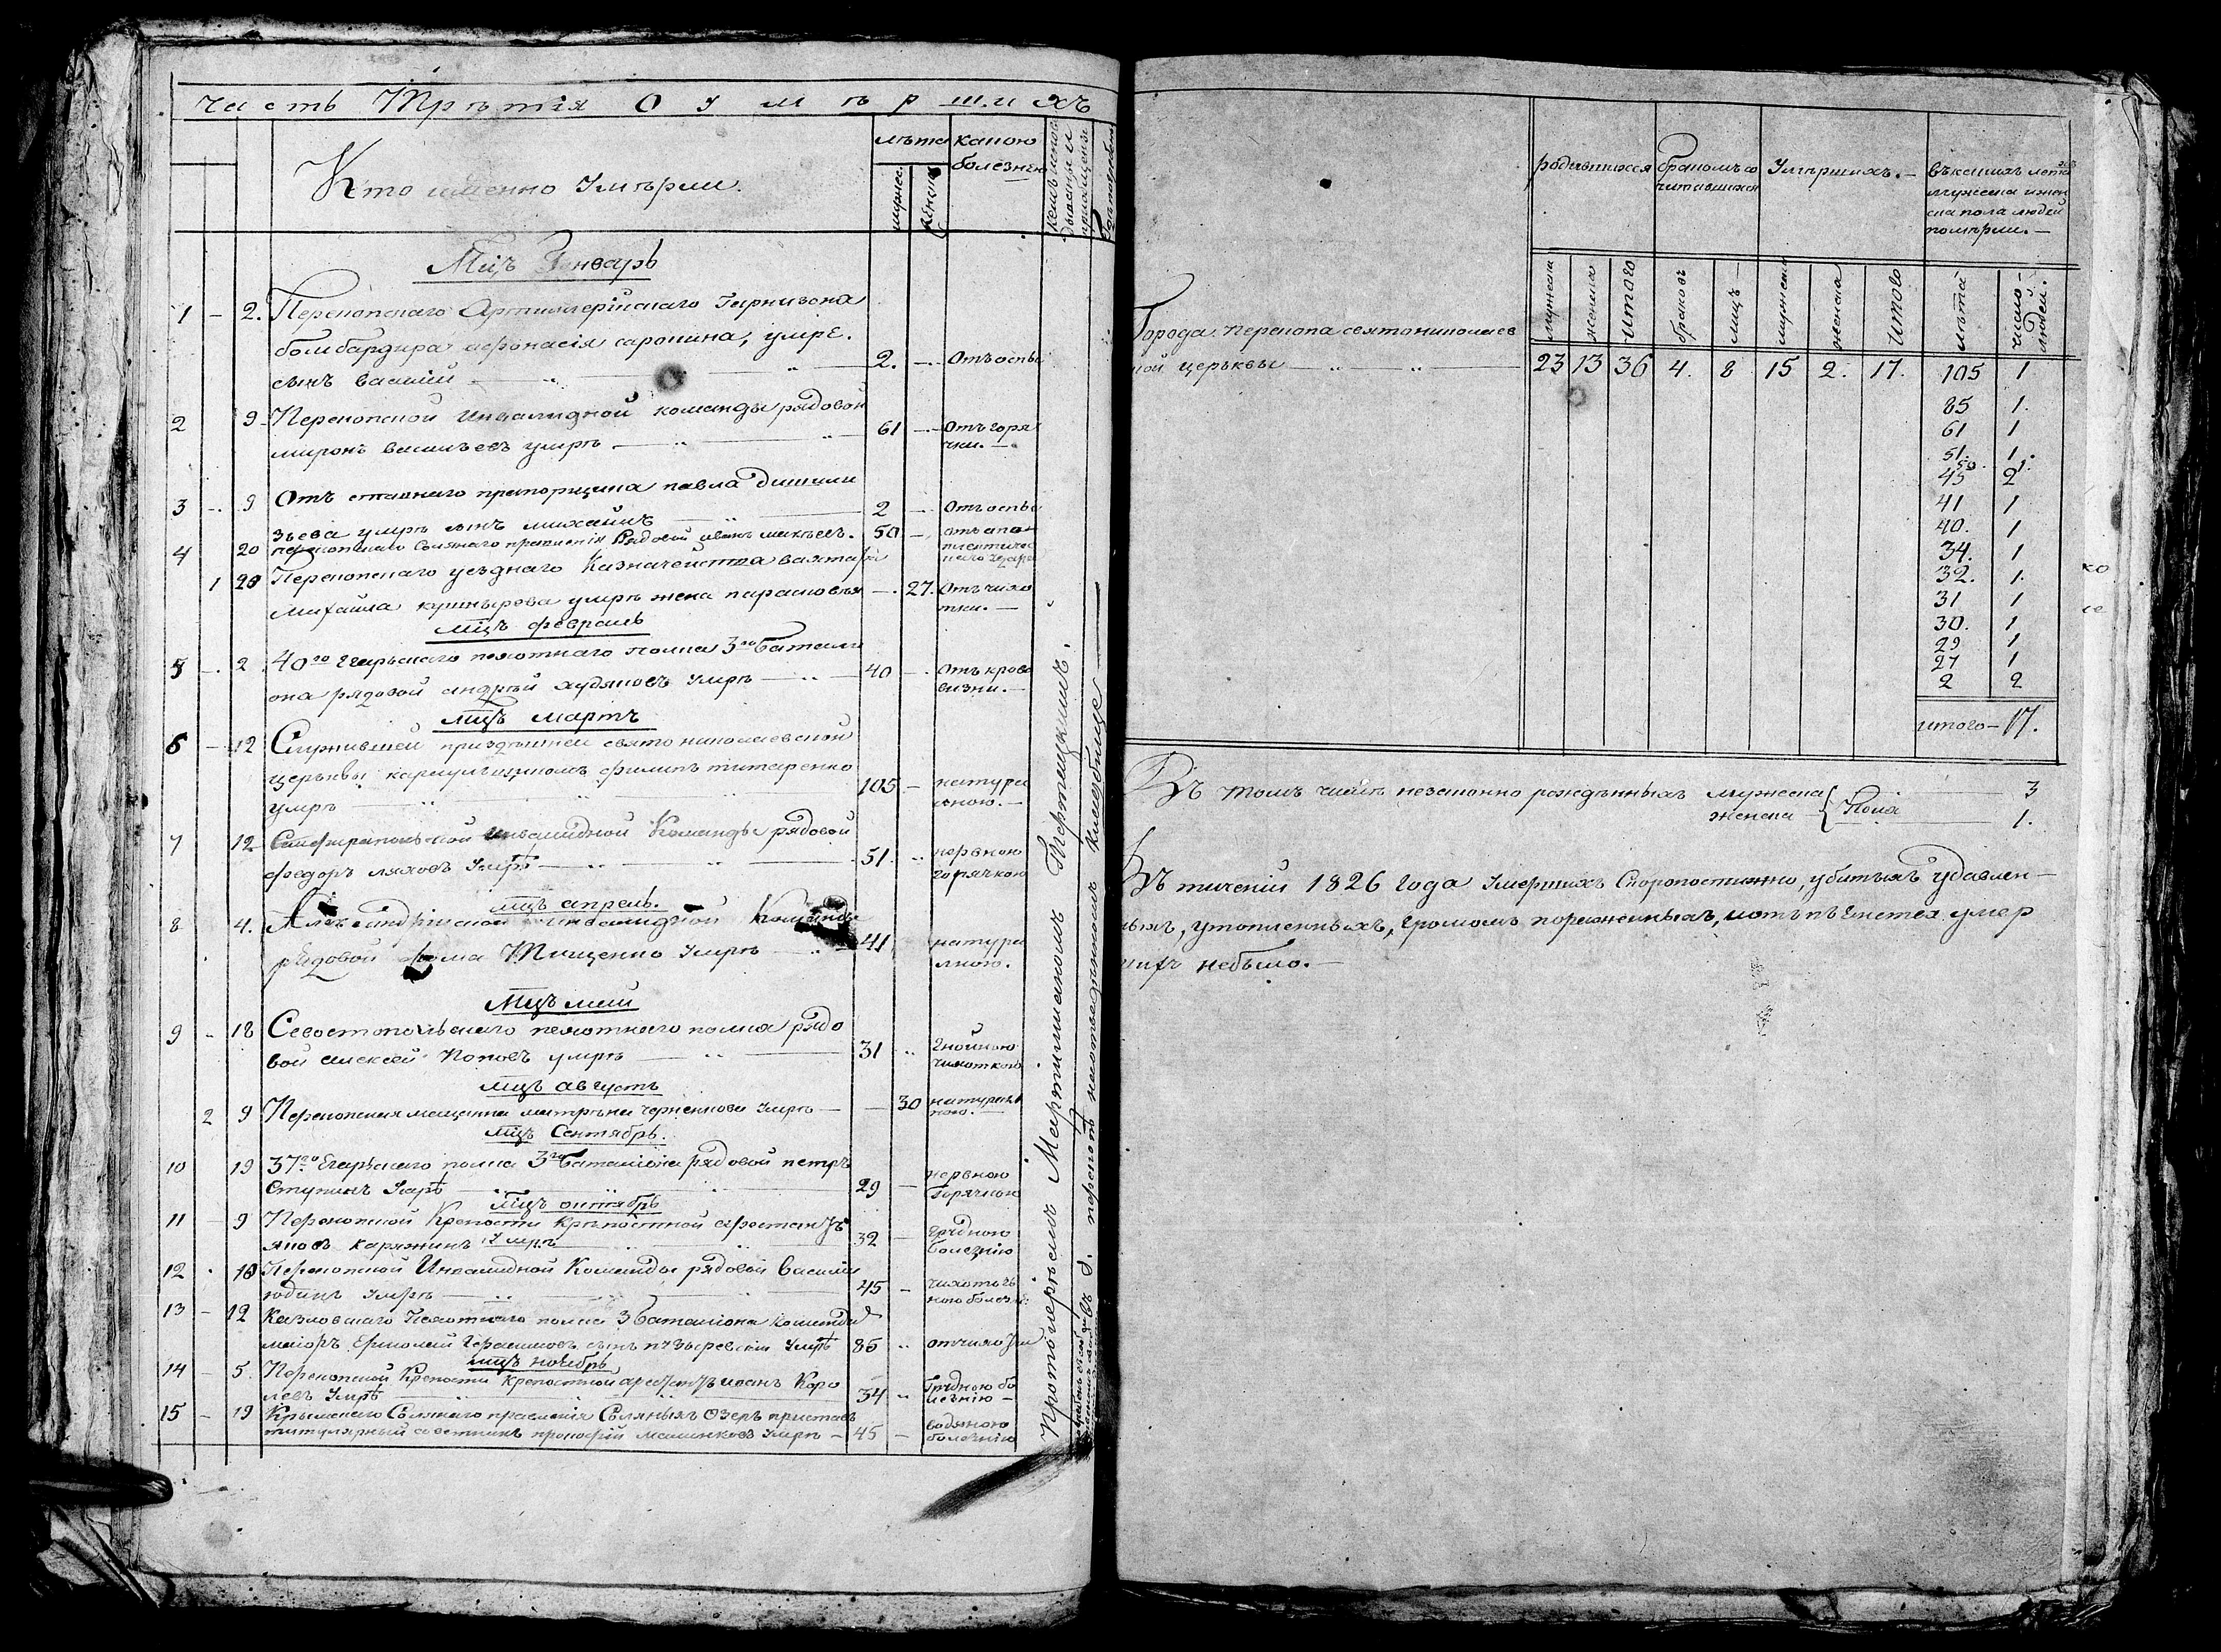 часть Трѣтія О умѣршихъ
Кто именно умѣрли.
лѣта
мужес.
женска
какою
болезнею
Мцъ Генварь
1 – 2. Перекопскаго Артиллерійскаго Гарнизона
бомбардира афонасія саронина, умре.
сынъ василій 2. Отъ оспы
2 9 Перекопской инвалидной команды рядовой
миронъ васильевъ умрѣ 61 Отъ горя
чки.
3 9 Отъ ставнаго прапорщика павла
зъева умрѣ сынъ михаилъ 2 Отъ оспы
4 20 перекопскаго Солянаго правленія Рядовой иванъ 50 отъ апо
плектиче
скаго удара
1 20 Перекопскаго уезднаго Казначейства вахтера
Михаила кушнырева умрѣ жена парасковья 27. Отъ чихо
тки.
мцъ февраль
5 2 40го Егарьскаго пехотнаго полка 3го Баталі
она рядовой андрѣй худяковъ умрѣ 40 Отъ крово
визни.
мцъ мартъ
6 12 Служившей приздѣшней свято николаевской
церьквы караульщикомъ филипъ титаренко
умрѣ 105 натура
льною.
7 12 Симферопольской инвалидной Команды рядовой
федоръ ляховъ умрѣ 51. нервною
горячкою
мцъ апрель.
8 4. Александрійской инвалидной Команды
рядовой фома Тищенко умрѣ 41 натура
лною.
Мцъ маи
9 18 Севостопольскаго пехотнаго полка рядо
вой алексей Поповъ умрѣ 31 Гнойною
чихоткою
мцъ августъ
2 9 Перекопская мещанка матрѣна черненкова умрѣ 30 натураль
ною.
мцъ Сентябрь.
10 19 37го Егарьскаго полка 3го Баталіона рядовой петръ
Ступинъ умрѣ 29 нервною
Горячкою
Мцъ октябрь
11 9 Перекопской Крепости крѣпостной арестантъ
яковъ каряжинъ умрѣ 32 Грудною
болезнію
12 10 Перекопской Инвалидной Команды рядовой василій
юдинъ умрѣ 45 чихоточ
ною болезн:
13 – 12 Казловскаго Пехотнаго полка 3 баталіона командир
маіоръ Ермолай Герасимовъ сынъ умрѣ 85 отчихотки
мцъ ноябрь
14 5. Перекопской Крепости крепостной арестантъ иванъ Коро
левъ умрѣ 34 Грудною бо
лезнію
15 19 Крымскаго Солянаго правленія Соляныхъ Озеръ приставъ
титулярный советникъ прокофій Малинковъ умрѣ 45 водяною
болезнію
Протоіереемъ Мартиміаномъ
Города Перекопа святониколаев
ной церьквы
родившихся
бракомъ со
читавшихся
Умѣршихъ.
въ какихъ лета
мужеска и жен
ска пола людей
помѣрли.
мужеска
женска
итого
браковъ
лицъ
мужеска
женска
Итого
лѣта
число
людей.
23 13 36 4. 8 15 2. 17. 105 1
85 1.
61 1
51. 1.
50. 1.
45 2
41 1
40. 1
34. 1
32. 1.
31 1
30. 1
29 1
27 1
2 2
итого – 17.
Въ томъ числѣ незаконно рожденныхъ мужеска Пола 3
женска 1.
Въ теченіи 1826 года умершихъ Скоропостижно, убитыхъ удавлен
ныхъ, утопленныхъ, громомъ пораженныхъ, умер
шихъ небыло.